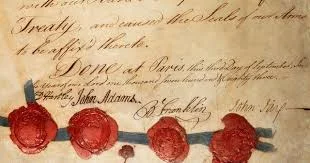 with our
Treaty, and caused the Seals of our Arms
to be affix'd thereto.
Done at Paris, this third Day of September, In
the Year of our Lord one thousand seven hundred & eighty three.
D Hartley John Adams. B Franklin John Jay